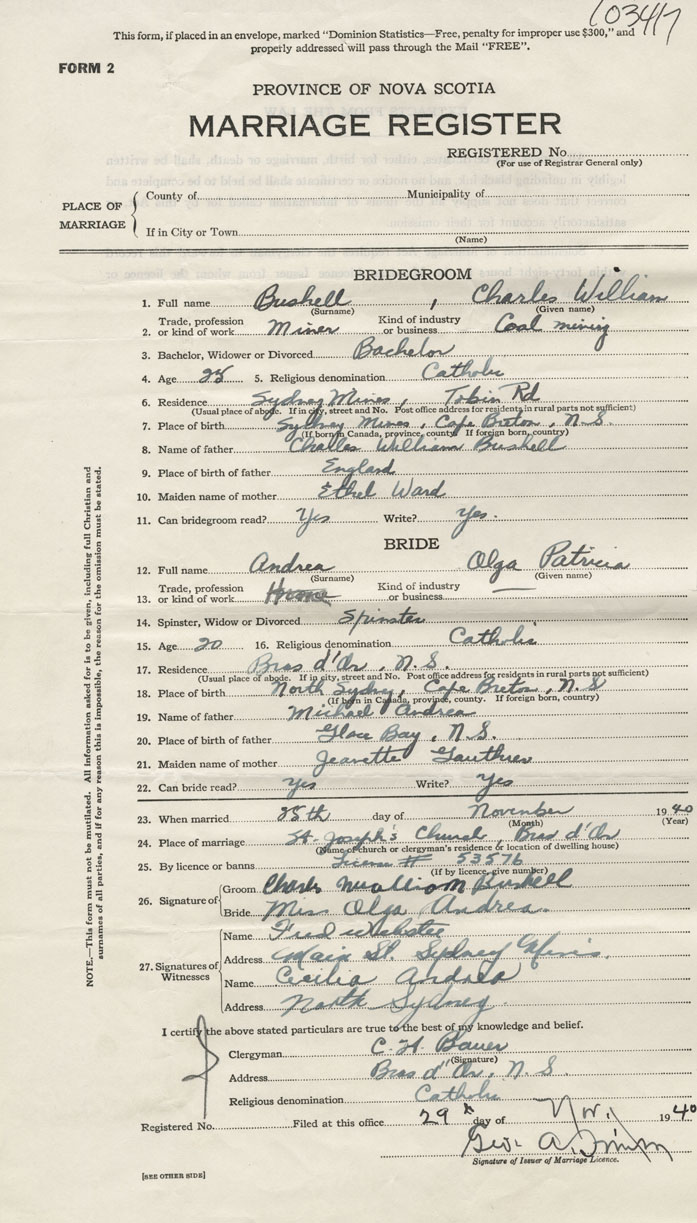 103417
This form, if placed in an envelope, marked "Dominion Statistics—Free, penalty for improper use $300," and
properly addressed will pass through the Mail "FREE".
FORM 2
PROVINCE OF NOVA SCOTIA
MARRIAGE REGISTER
REGISTERED No.
(For use of Registrar General only)
PLACE OF MARRIAGE
County of Municipality of
If in City or Town
(Name)
BRIDEGROOM
1. Full name Bushell, Charles William
(Surname) (Given name)
2. Trade, profession or kind of work Miner Kind of industry or business Coal mining
3. Bachelor, Widower or Divorced Bachelor
4. Age 25 5. Religious denomination Catholic
6. Residence Sydney Mines, Tobin Rd
(Usual place of abode. If in city, street and No. Post office address for residents in rural parts not sufficient)
7. Place of birth Sydney Mines, Cape Breton, N.S.
(If born in Canada, province, county. If foreign born, country)
8. Name of father Charles William Bushell
9. Place of birth of father England
10. Maiden name of mother Ethel Ward
11. Can bridegroom read? Yes Write? Yes.
BRIDE
12. Full name Andrea Olga Patricia
(Surname) (Given name)
13. Trade, profession or kind of work Home Kind of industry or business —
14. Spinster, Widow or Divorced Spinster
15. Age 20 16. Religious denomination Catholic
17. Residence Bras d'Or, N.S.
(Usual place of abode. If in city, street and No. Post office address for residents in rural parts not sufficient)
18. Place of birth North Sydney, Cape Breton, N.S
(If born in Canada, province, county. If foreign born, country)
19. Name of father Michael Andrea
20. Place of birth of father Glace Bay, N.S.
21. Maiden name of mother Jeanette Gauthier
22. Can bride read? Yes Write? Yes
23. When married 25th day of November 1940
(Month) (Year)
24. Place of marriage St. Joseph's Church, Bras d'Or
(Name of church or clergyman's residence or location of dwelling house)
25. By licence or banns License # 53576
(If by licence, give number)
26. Signature of Groom Charles William Bushell
Bride Miss Olga Andrea.
27. Signatures of Witnesses
Name Fred Webster
Address Main St. Sydney Mines.
Name Cecilia Andrea
Address North Sydney.
I certify the above stated particulars are true to the best of my knowledge and belief.
Clergyman C. W. Bauer
(Signature)
Address Bras d'Or, N.S.
Religious denomination Catholic
Registered No. Filed at this office 29th day of Nov. 1940
Geo. A.
Signature of Issuer of Marriage Licence.
[SEE OTHER SIDE]
NOTE.—This form must not be mutilated. All information asked for is to be given, including full Christian and
surnames of all parties, and if for any reason this is impossible, the reason for the omission must be stated.